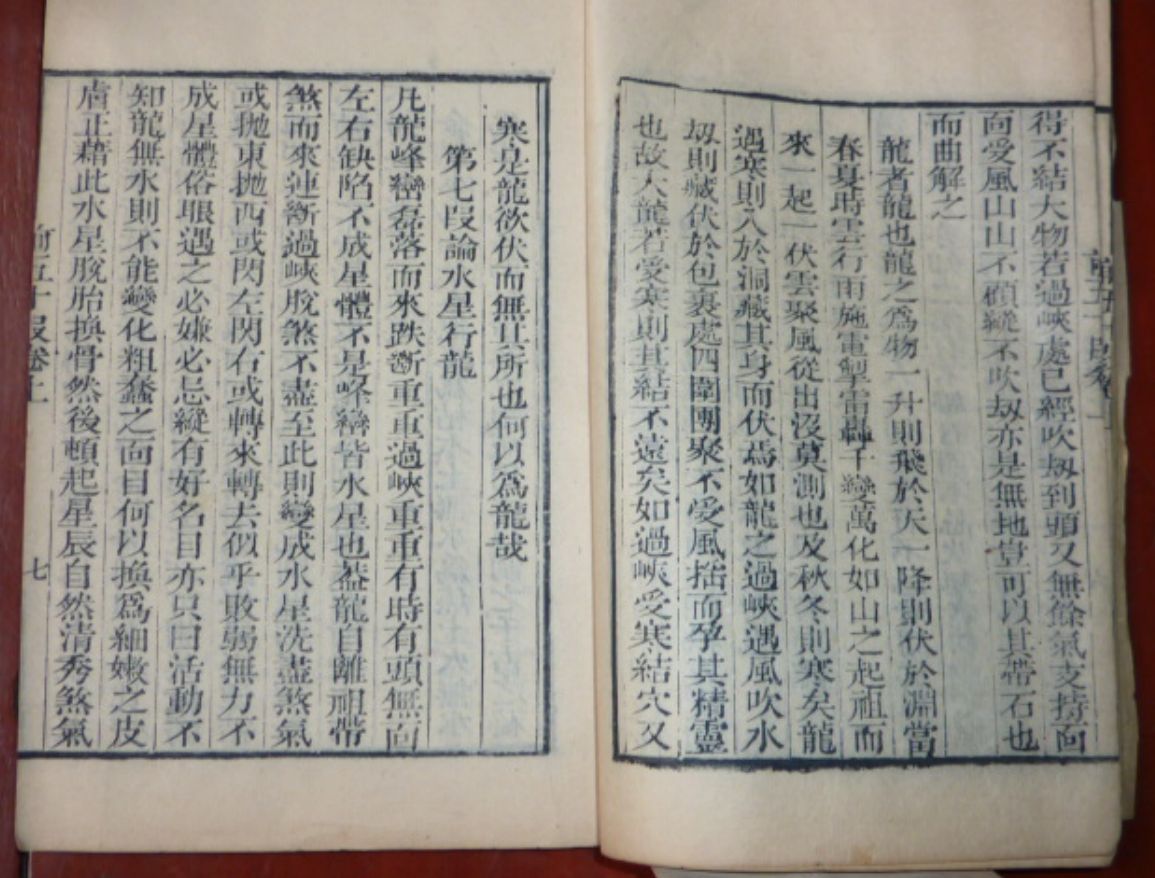 得不結大物若過峽處已經吹刼到頭又無餘氣支持向
面受風山山不顧縱不吹刼亦是無地豈可以其帶石也
而曲解之
龍者龍也龍之為物一升則飛於天一降則伏於淵當
春夏時雲行雨施電掣雷轟千變萬化如山之起祖而
來一起一伏雲聚風從出沒莫測也及秋冬則寒矣龍
遇寒則入於洞藏其身而伏焉如龍之過峽遇風吹水
刼則藏伏於包裹處四圍團聚不受風揺而孕其精靈
也故大龍若受寒則其結不遠矣如過峽受寒結穴又
寒是龍欲伏而無其所也何以為龍哉
第七叚論水星行龍
凡龍峰巒磊落而來跌斷重重過峽重重有時有頭無面
左右缺陷不成星體不是峰巒皆水星也葢龍自離祖帶
煞而來連斷過峽脫煞不盡至此則變成水星洗盡煞氣
或抛東抛西或閃左閃右或轉來轉去似乎敗弱無力不
成星體俗眼遇之必嫌必忌縱有好名目亦只曰活動不
知龍無水則不能變化粗蠢之面目何以換為細嫩之皮
膚正藉此水星脫胎換骨然後頓起星辰自然清秀煞氣
五十叚卷上
七